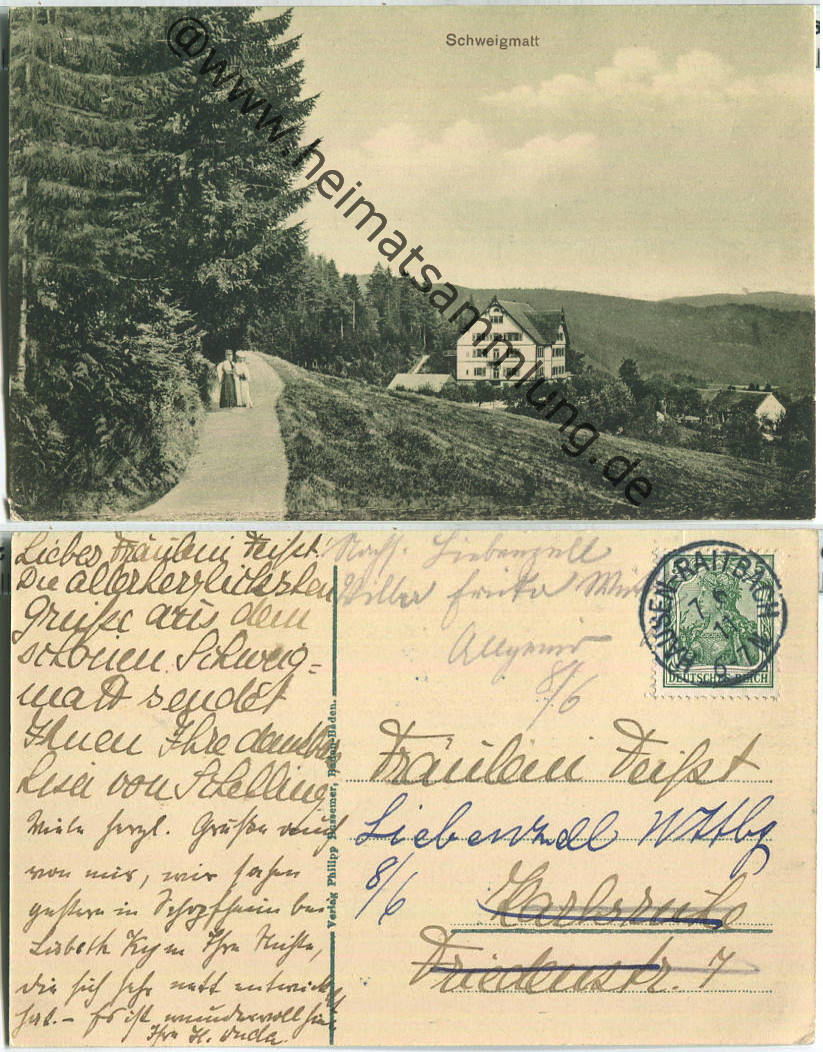 Schweigmatt
@www.heimatsammlung.de
Liebes Fräulein Deißt!
Die allerherzlichsten
Grüße aus dem
schönen Schweig=
matt sendet
Ihnen Ihre dankbare
Lisa von Schelling
Viele herzl. Grüße auch
von mir, wir sahen
gestern in Schopfheim bei
Lisbeth Ihre Nichte,
die sich sehr nett entwickelt
hat. – Es ist wundervoll hier
Ihre H.
Verlag Philipp Bussemer, Baden-Baden.
Nachf. Liebenzell
Villa
8/6
HAUSEN-RAITBACH
7 6
11
DEUTSCHES REICH
Fräulein Deißt
Liebenzell Wttbg
8/6
Karlsruhe
Friedenstr. 7